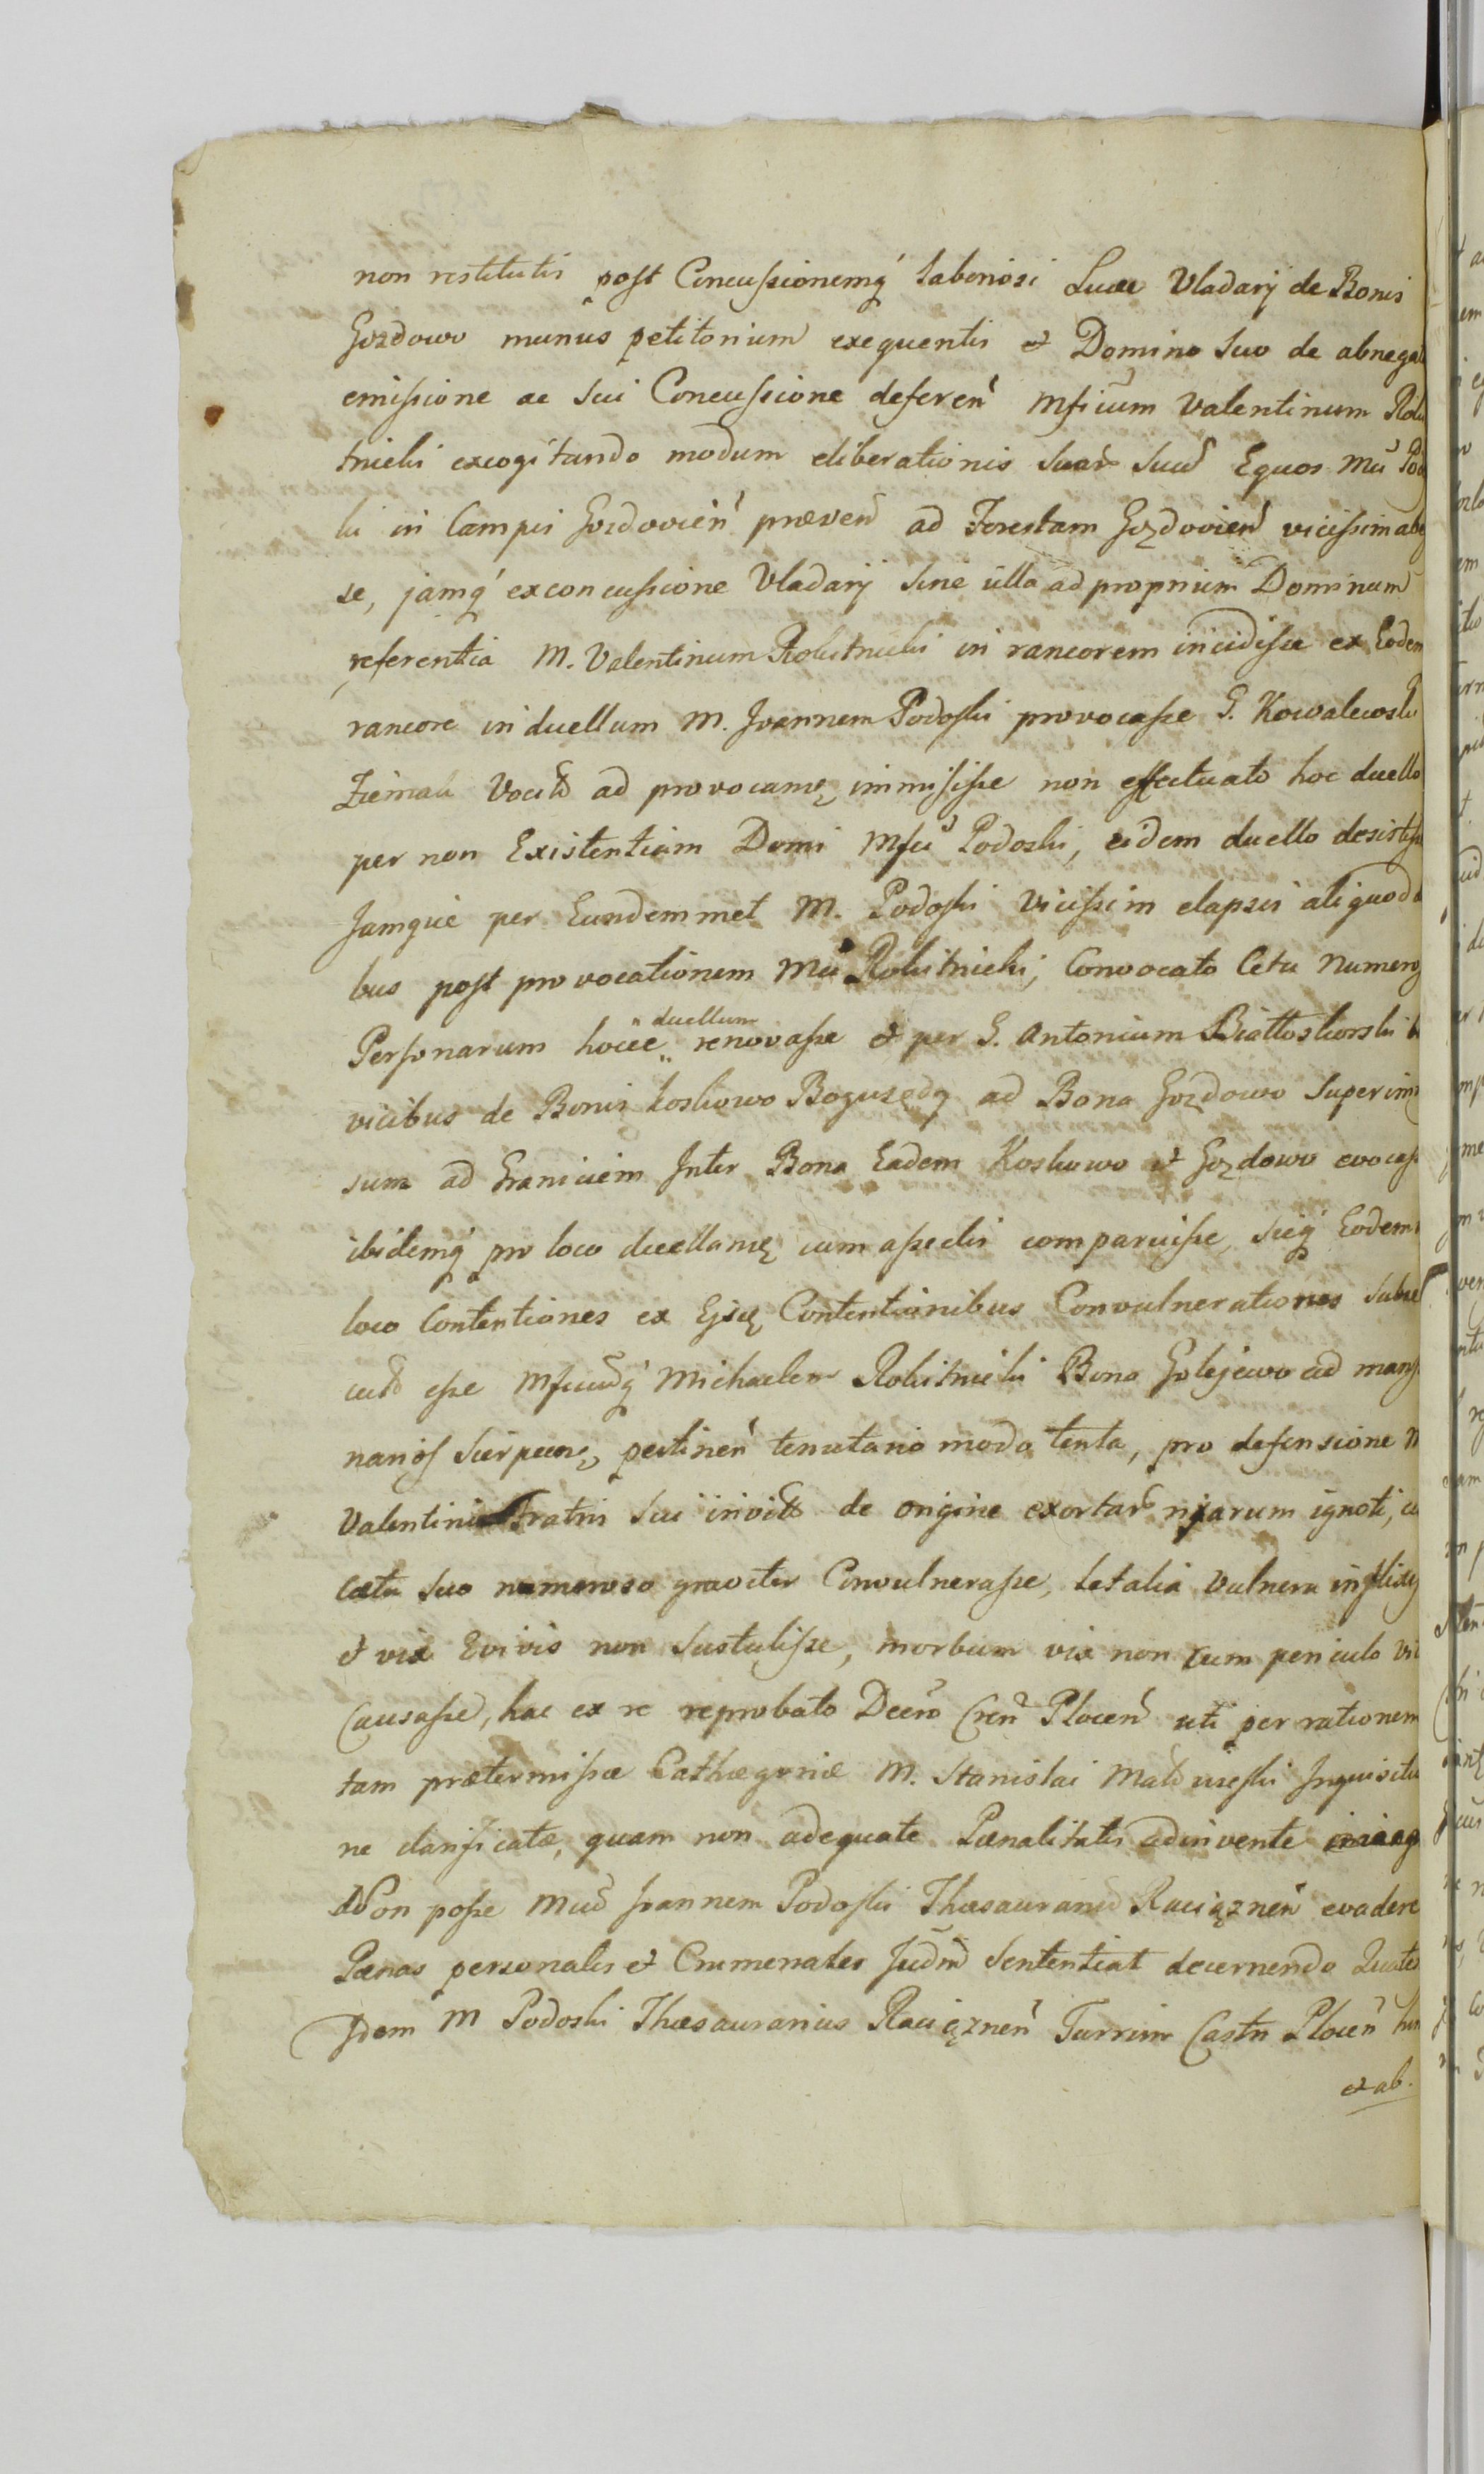 non restitutis post Concussionemq́ laboriosi Lucae Vladarij de Bonis
Gozdowo munus petitorium exequentis et Domino Suo de abnegat
emissione ac Sui Concussione deferen̄ Mficum Valentinum Roki
tnicki excogitando modum eliberationis Suar Suor̄ Equos Mci Podo
ski in Campis Gozdovien̄ praeven̄ ad Forestam Gozdovien̄ vicissim abe
se, jamq́ ex concussione Vladarij Sine ulla ad proprium Dominum
referentia M. Valentinum Rokitnicki in rancorem incidisse ex Eodem
rancore in duellum M. Joannem Podoski provocasse G. Kowalewski
Ziemak Vocit̄ ad provocamꝫ immisisse non effectuato hoc duello
per non Existentiam Domi Mfci Podoski, eidem duello desistisse
Jamque per Eundemmet M. Podoski vicissim elapsis aliquod d
bus post provocationem Mci Rokitnicki, Convocato Cetu Numeroz
Personarum hocce duellum renovasse et per G. Antonium Białłoskorski b
vicibus de Bonis Koskowo Bogusędy ad Bona Gozdowo Superim
sum ad Graniciem Inter Bona Eadem Koskowo et Gozdowo evocass
ibidemq́ pro loco duellamꝫ cum asseclis comparuisse, sicq́ Eodem
loco Contentiones ex Ejsdꝫ Contentionibus Convulnerationes Subse
cut̄ esse Mficumq́ Michaelem Rokitnicki Bona Golejewo ad mans
narios Sierpcenꝫ pertinen̄ tenutario modo tenta, pro defensione M
Valentini Fratris Sui invit̄ de origine exortar̄ rixarum ignoti, cu
caetu Suo numeroso graviter Convulnerasse, Letalia Vulnera inflixis
et vix Evivis non Sustulisse, morbum vix non cum periculo vit
Causasse, hac ex re reprobato Decr̄o Cren̄ Plocen̄ uti per rationem
tam praetermissae Cathegoriae M. Stanislai Inquisitio
ne clarificatae, quam non adequate Paenalitatis adinventae
Non posse Mcum Joannem Podoski Thesaurarium Raciąznen̄ evadere
Paenas personales et Crumenales Judm̄ Sententiat decernendo Quate
Idem M Podoski Thesaurarius Raciąznen̄ Turrim Castri Plocen̄ hu
et ab.